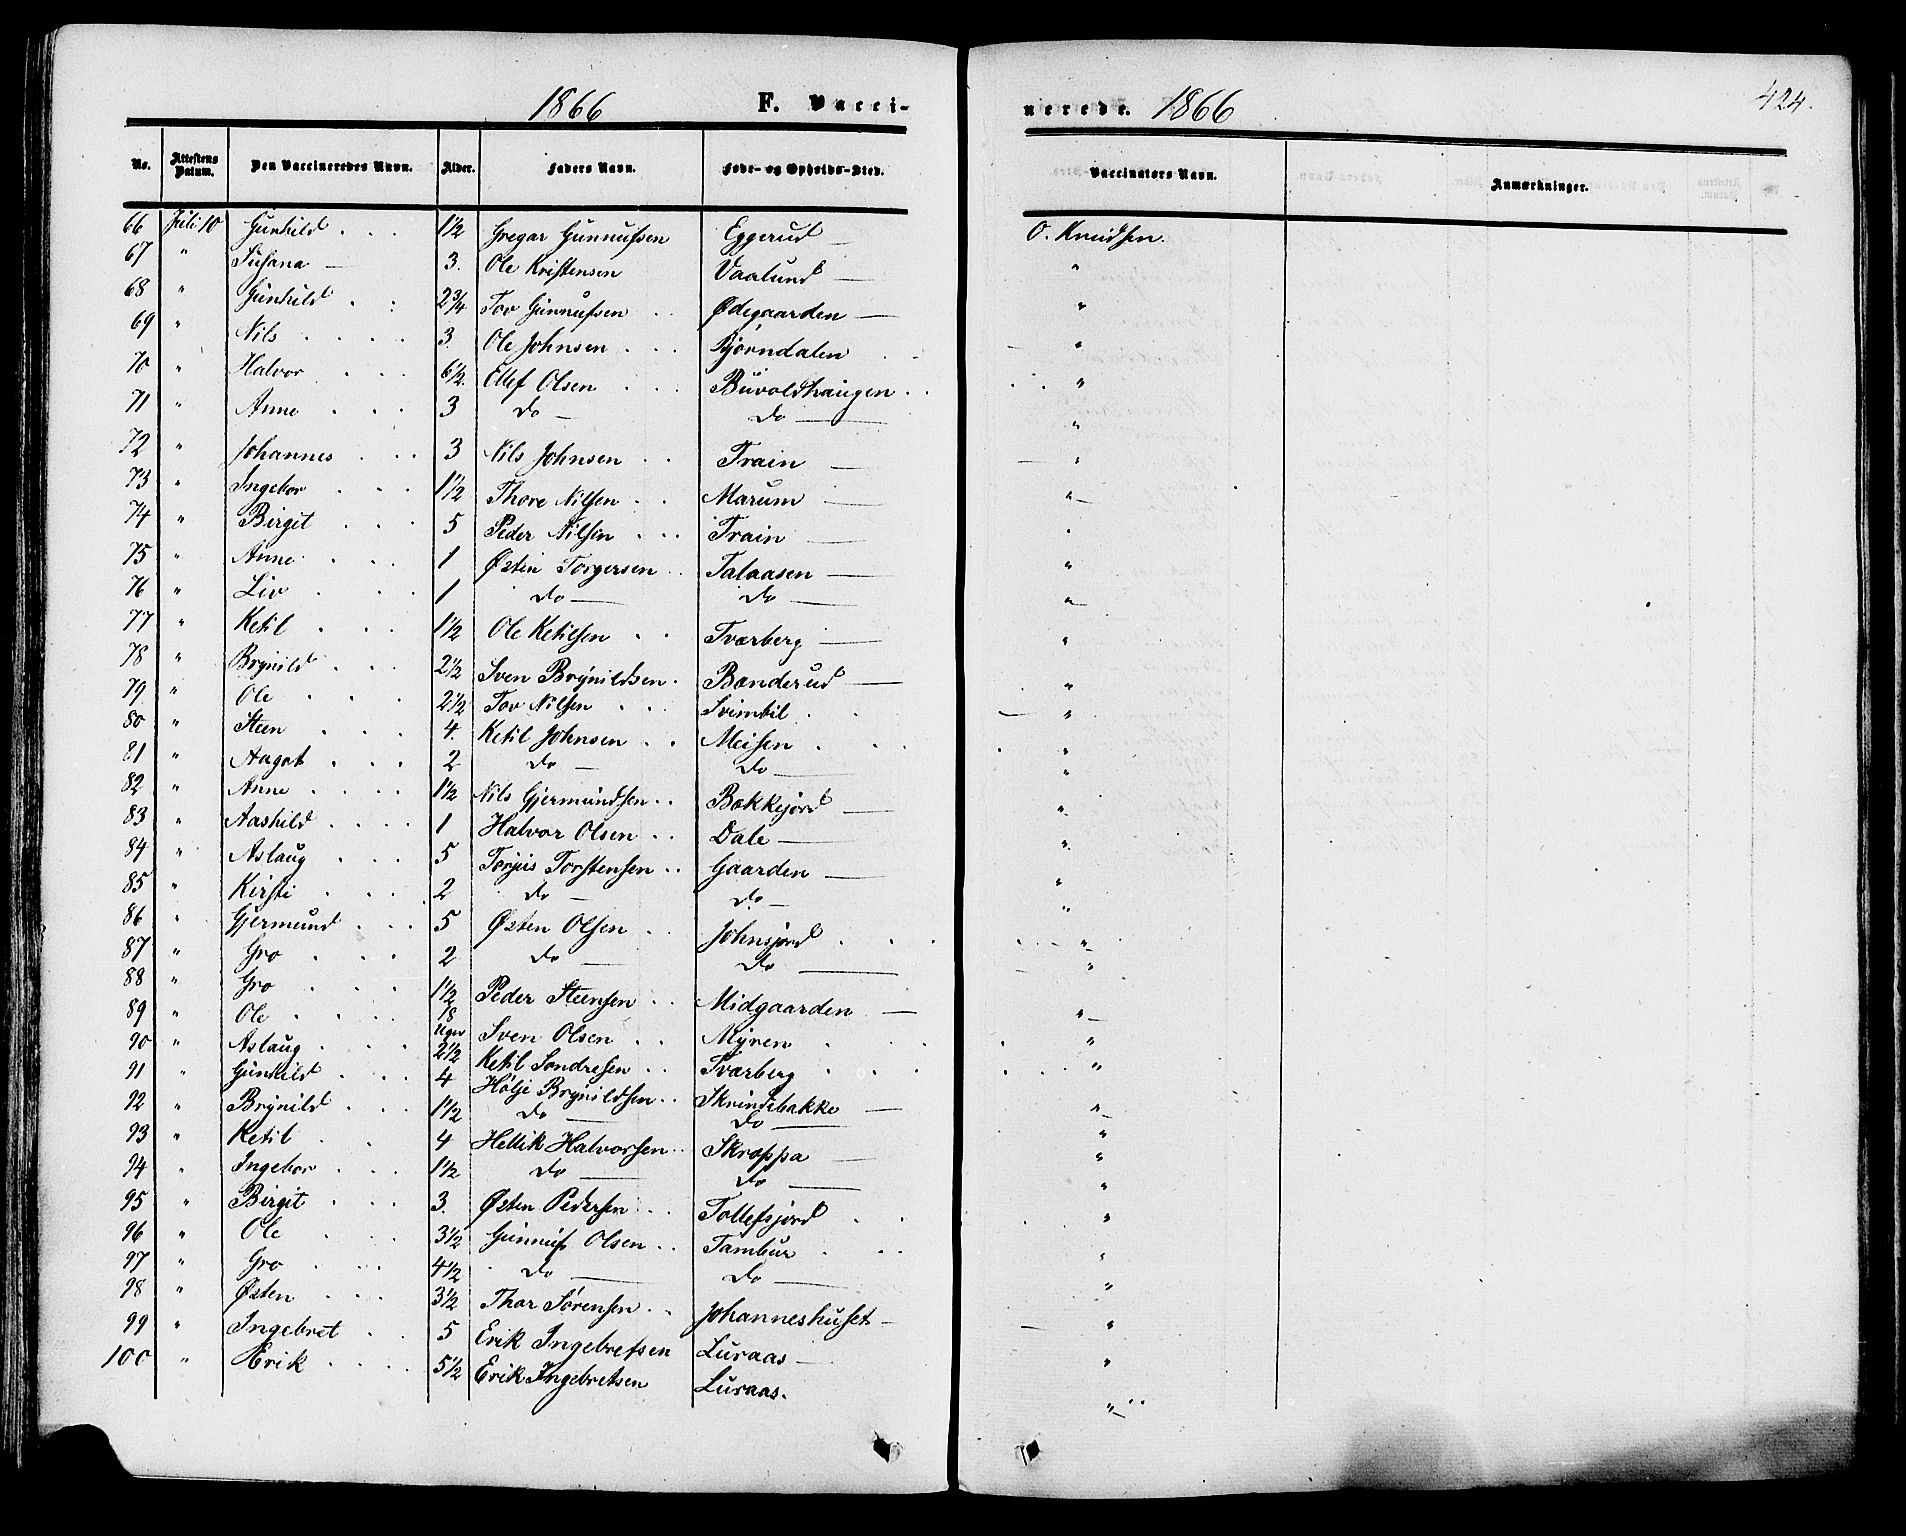 1866 F. Vacci-
nerede. 1866 424.
No. Attestens Datum. Den Vaccineredes Navn. Alder. Faders Navn. Føde- og Opholds-Sted. Vaccinators Navn. Anmærkninger.
66 Juli 10 Gunhild . . . 1 1/2 Gregar Gunnufsen Eggerud — O. Knudsen.
67 " Susana — 3. Ole Kristensen Vaalund — "
68 " Gunhild . . 2 3/4 Tov Gunnufsen . . Ødegaarden — "
69 " Nils . . . . 3. Ole Johnsen . . . Bjørndalen . . "
70 " Halvor . . . 6 1/2. Ellef Olsen . . . Buvoldhaugen . . "
71 " Anne . . . 3 do — do — "
72 " Johannes . . . 3 Nils Johnsen . . Train — "
73 " Ingebor . . . 1 1/2 Thore Nilsen . . Marum — "
74 " Birgit . . . 5 Peder Nilsen . . . Train — "
75 " Anne . . . 1 Østin Torgersen . . Talaasen — "
76 " Liv . . . 1 do — do — "
77 " Ketil . . . 1 1/2 Ole Ketilsen . . Tværberg — "
78 " Brynild . . . 2 1/2 Sven Brynildsen . Bænderud — "
79 " Ole . . . 2 1/2 Tov Nilsen . . . Svimbil . . "
80 " Steen . . . 4. Ketil Johnsen . . Meisen . . . "
81 " Aagot . . . 2 do — do — "
82 " Anne . . . . 1 1/2 Nils Gjermundsen . . Bækkejord — "
83 " Aashild . . . . 1 Halvor Olsen . . Dale — "
84 " Aslaug . . . 5 Torjus Torstensen . . Gaarden — "
85 " Kirsti . . . 2 do — do — "
86 " Gjermund . . . 5 Østen Olsen . . Johnsjord . . . "
87 " Gro . . . 2 do — do — "
88 " Gro . . . 1 1/2 Peder Steensen . . Midgaarden — "
89 " Ole . . . . 18 Uger Sven Olsen . . Myren . . . "
90 " Aslaug . . . 2 1/2 Ketil Sondresen . . Tværberg . . . "
91 " Gunhild . . . 4 Hølje Brynildsen . . Skrindebakke — "
92 " Brynild . . . 1 1/2 do — do — "
93 " Ketil . . 4 Hellik Halvorsen . . Skroppa — "
94 " Ingebor . . . 1 1/2 do — do — "
95 " Birgit . . . 3. Østen Pedersen . . . Tollefsjord . . "
96 " Ole . . . 3 1/2 Gunnuf Olsen . . Tambur . . . "
97 " Gro . . . 4 1/2 do — do — "
98 " Østen . . . 3 1/2 Thor Sørensen . . Johanneshuset — "
99 " Ingebret . . 5 Erik Ingebretsen Luraas — "
100 " Erik . . . . 5 1/2 Erik Ingebretsen Luraas. "